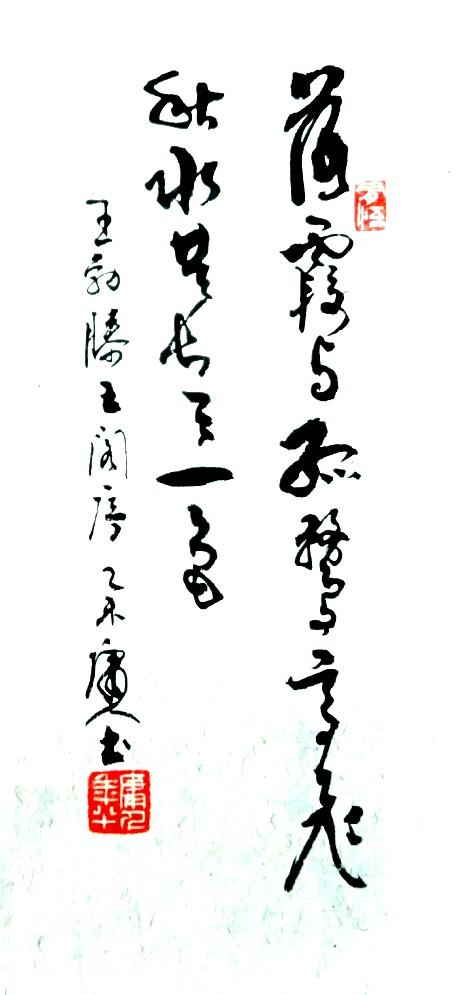 落霞与孤鹜齐飞
秋水共长天一色
王勃滕王阁序 乙未庸人书